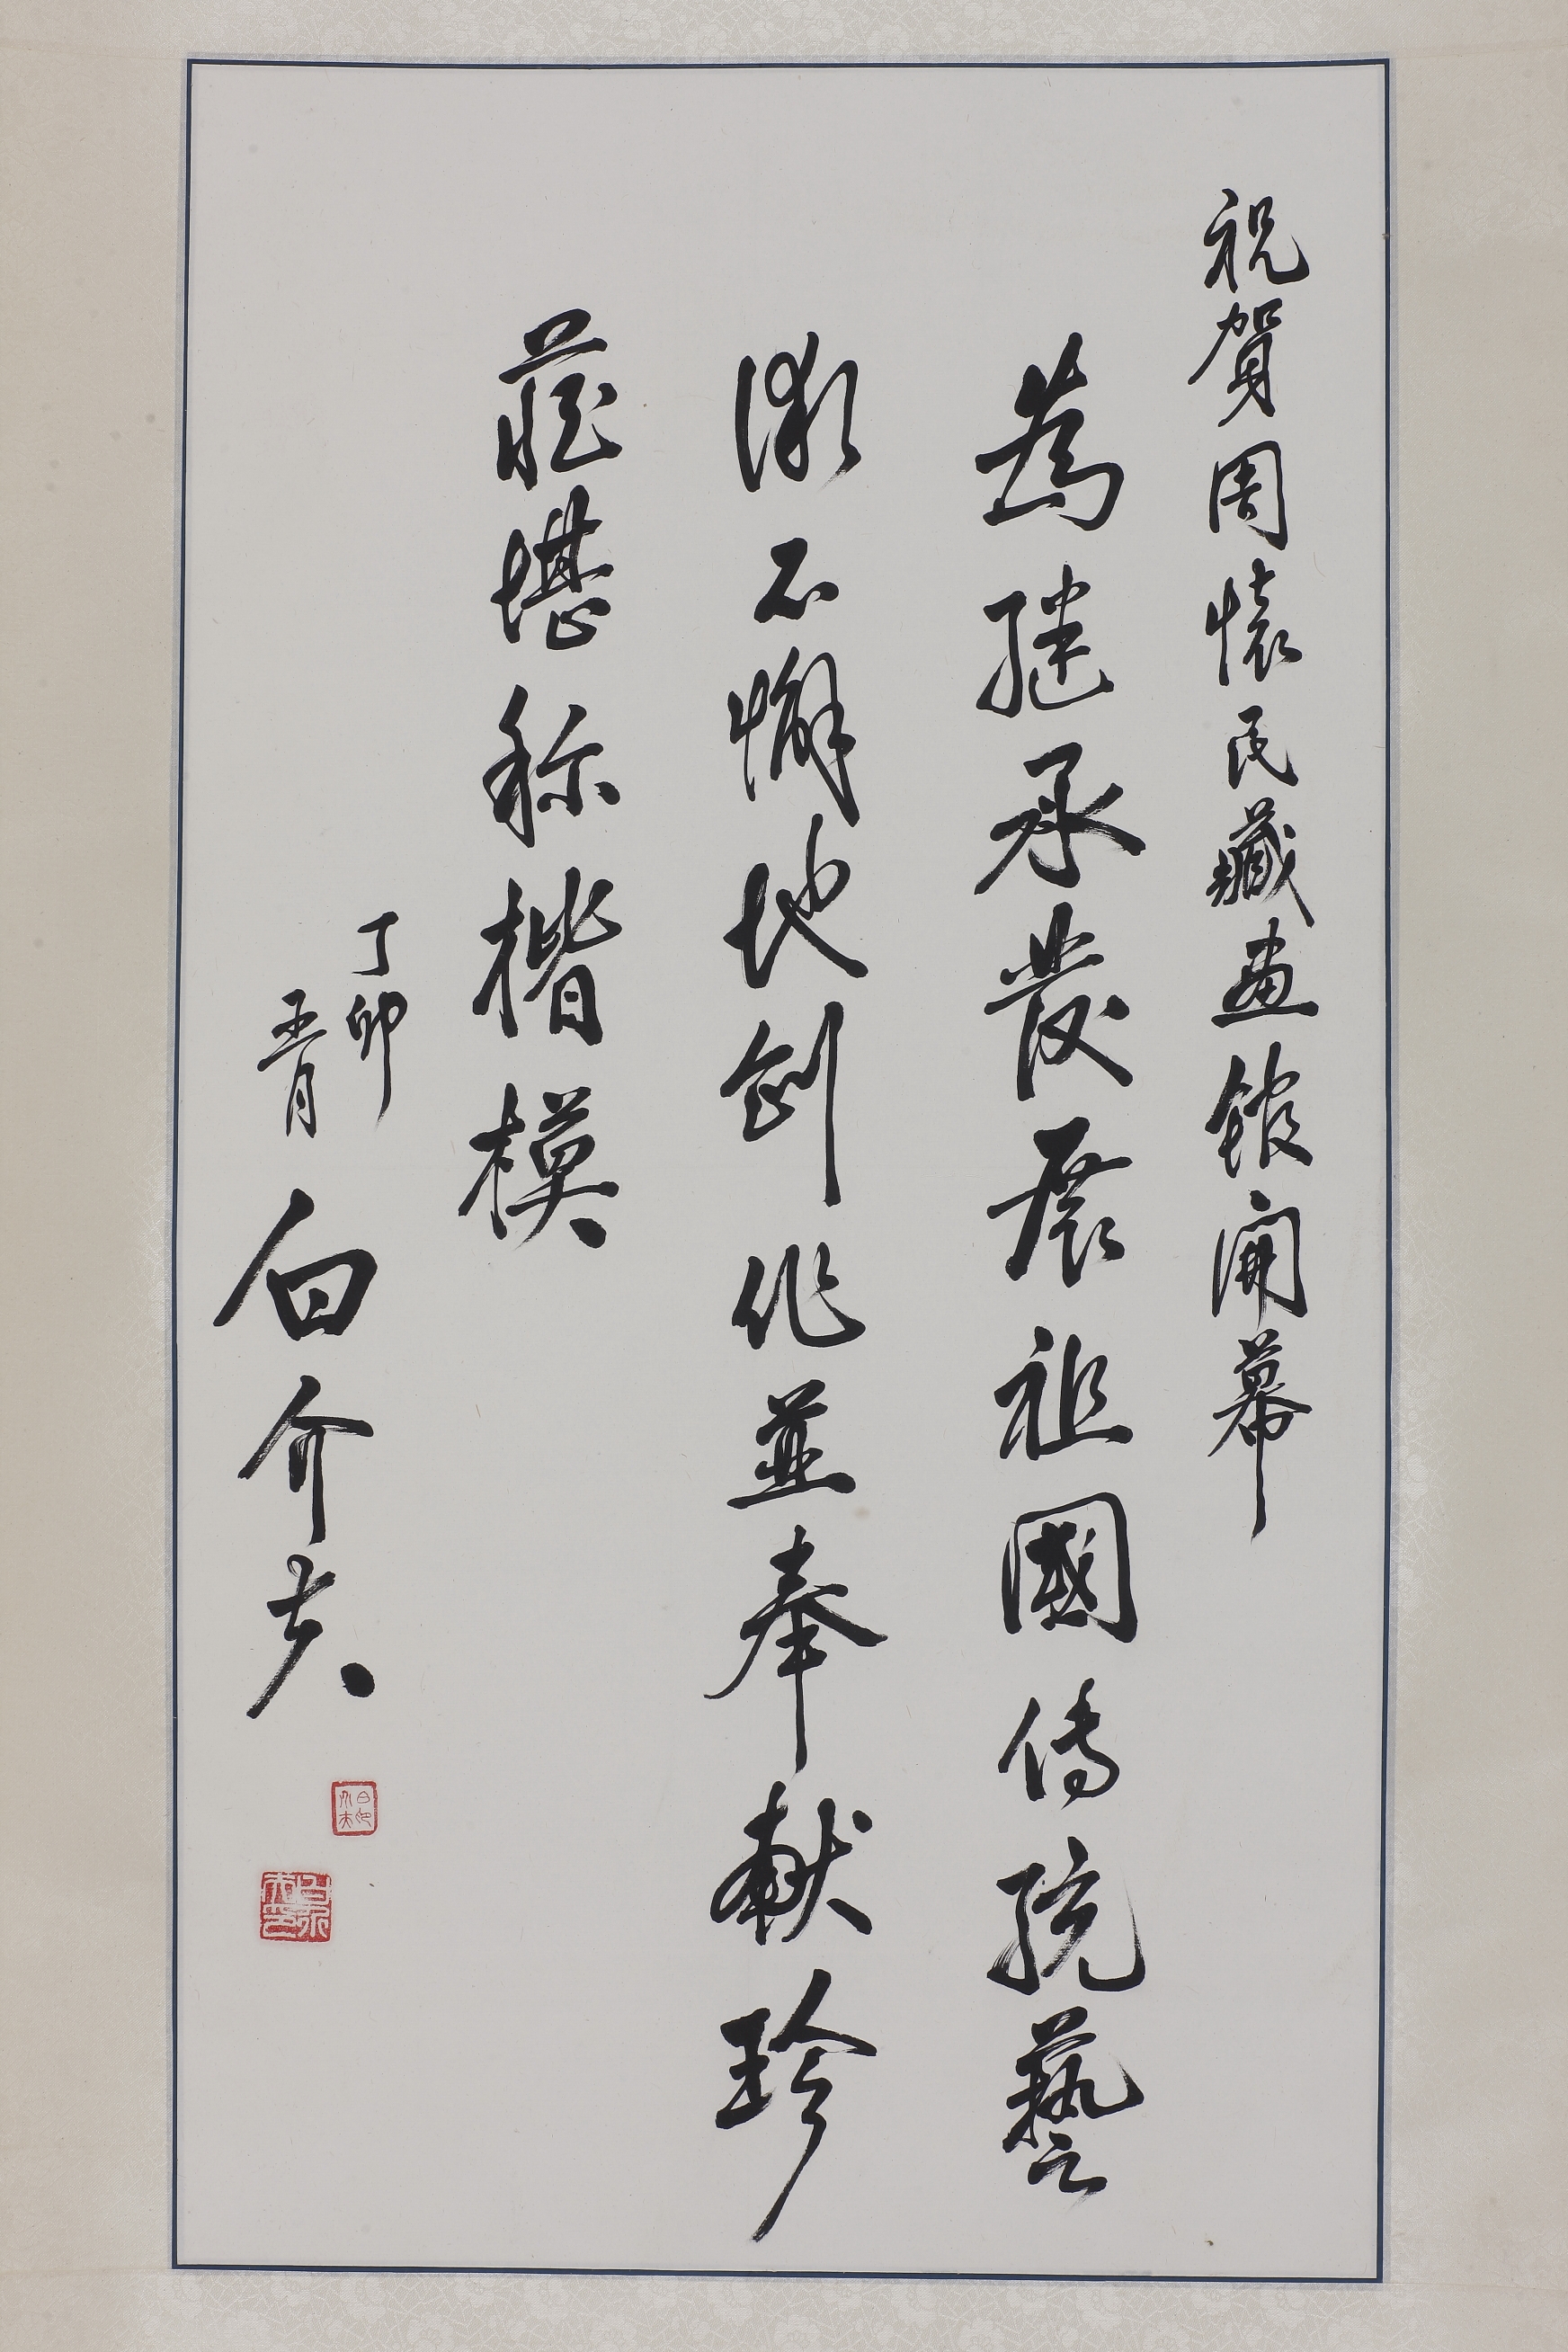 祝賀周懷民藏畫館開幕
為继承發展祖國傳統藝
術不懈地創作並奉献珍
藏堪称楷模
丁卯
五月
白介夫